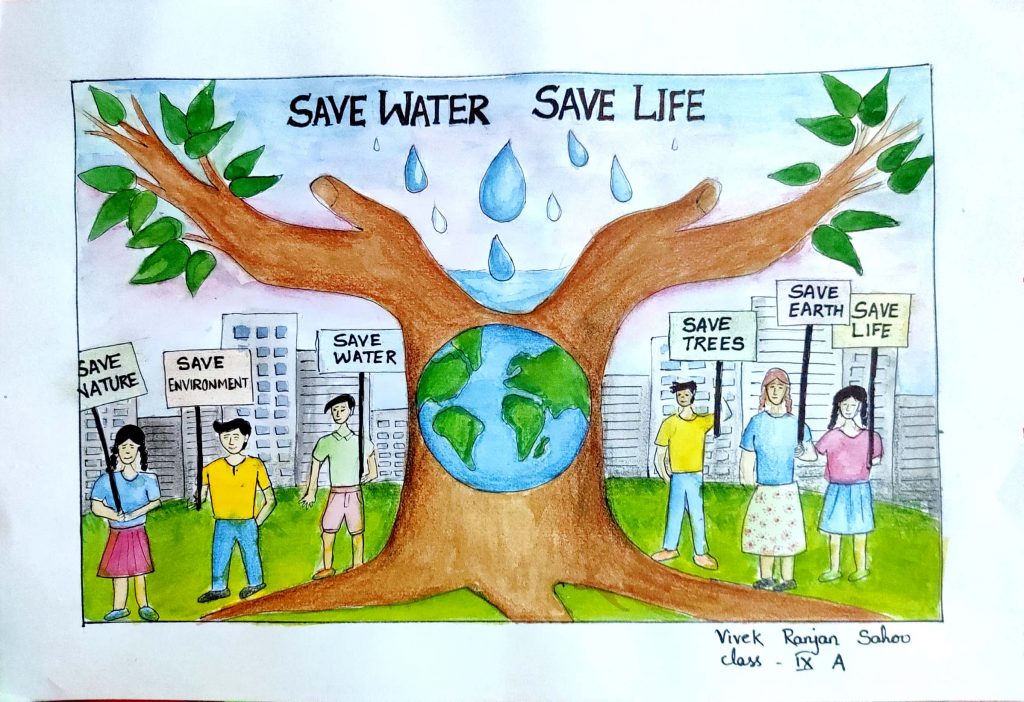 SAVE WATER SAVE LIFE
SAVE
NATURE
SAVE
ENVIRONMENT
SAVE
WATER
SAVE
TREES
SAVE
EARTH
SAVE
LIFE
Vivek Ranjan Sahoo
class - IX A